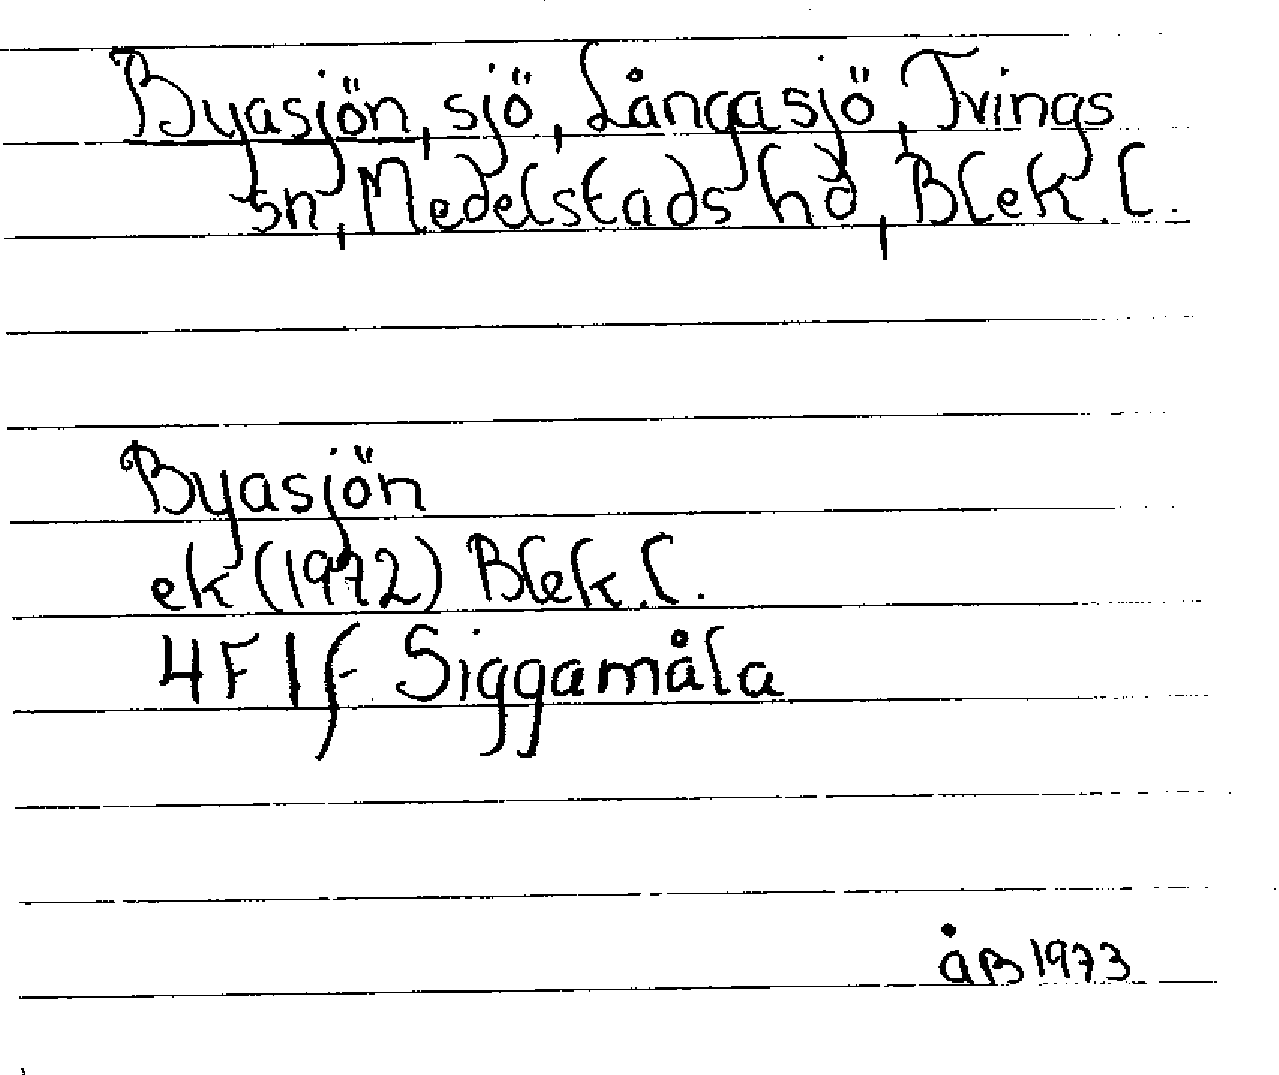 Byasjön, sjö, Långasjö, Tvings
sn, Medelstads hd, Blek. l.
Byasjön
ek (1972) Blek. l.
4F1f Siggamåla
åB 1973